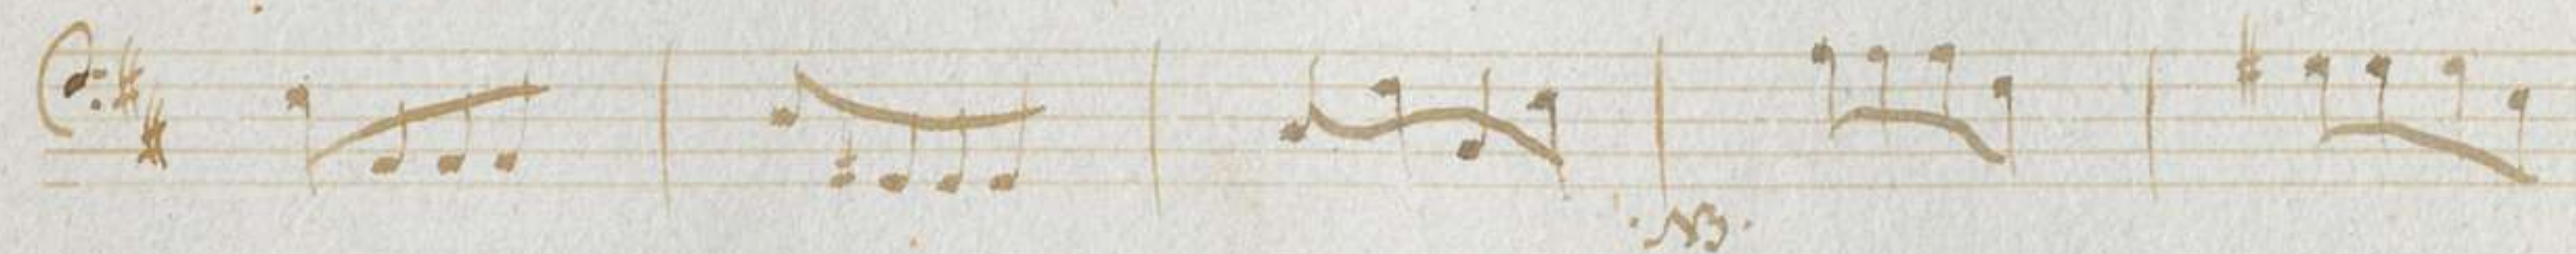 . NB .